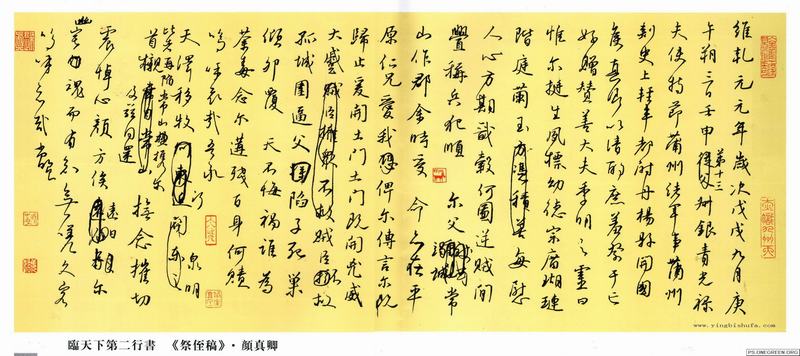 維乾元元年歲次戊戌九月庚
午朔三日壬申第十三叔銀青光祿
夫使持節蒲州諸軍事蒲州
刺史上輕車都尉丹楊縣開國
侯真卿以清酌庶羞祭于亡
姪贈贊善大夫季明之靈曰
惟爾挺生夙標幼德宗廟瑚璉
階庭蘭玉積善每慰
人心方期戩穀何圖逆賊閒
釁稱兵犯順 爾父竭誠常
山作郡余時受 命亦在平
原仁兄愛我恐俾爾傳言爾既
歸止爰開土門土門既開凶威
大蹙賊臣擁眾不救賊臣不救
孤城圍逼父陷子死巢
傾卵覆 天不悔禍誰為
荼毒念爾遘殘百身何贖
嗚呼哀哉吾承
天澤移牧河關 泉明
比者再陷常山攜爾
首櫬及茲同還
撫念摧切
震悼心顏方俟遠日爾
幽宅魂而有知無嗟久客
嗚呼哀哉尚饗
www.yingbishufa.com
臨天下第二行書 《祭侄稿》·顏真卿
PS.ONEGREEN.ORG